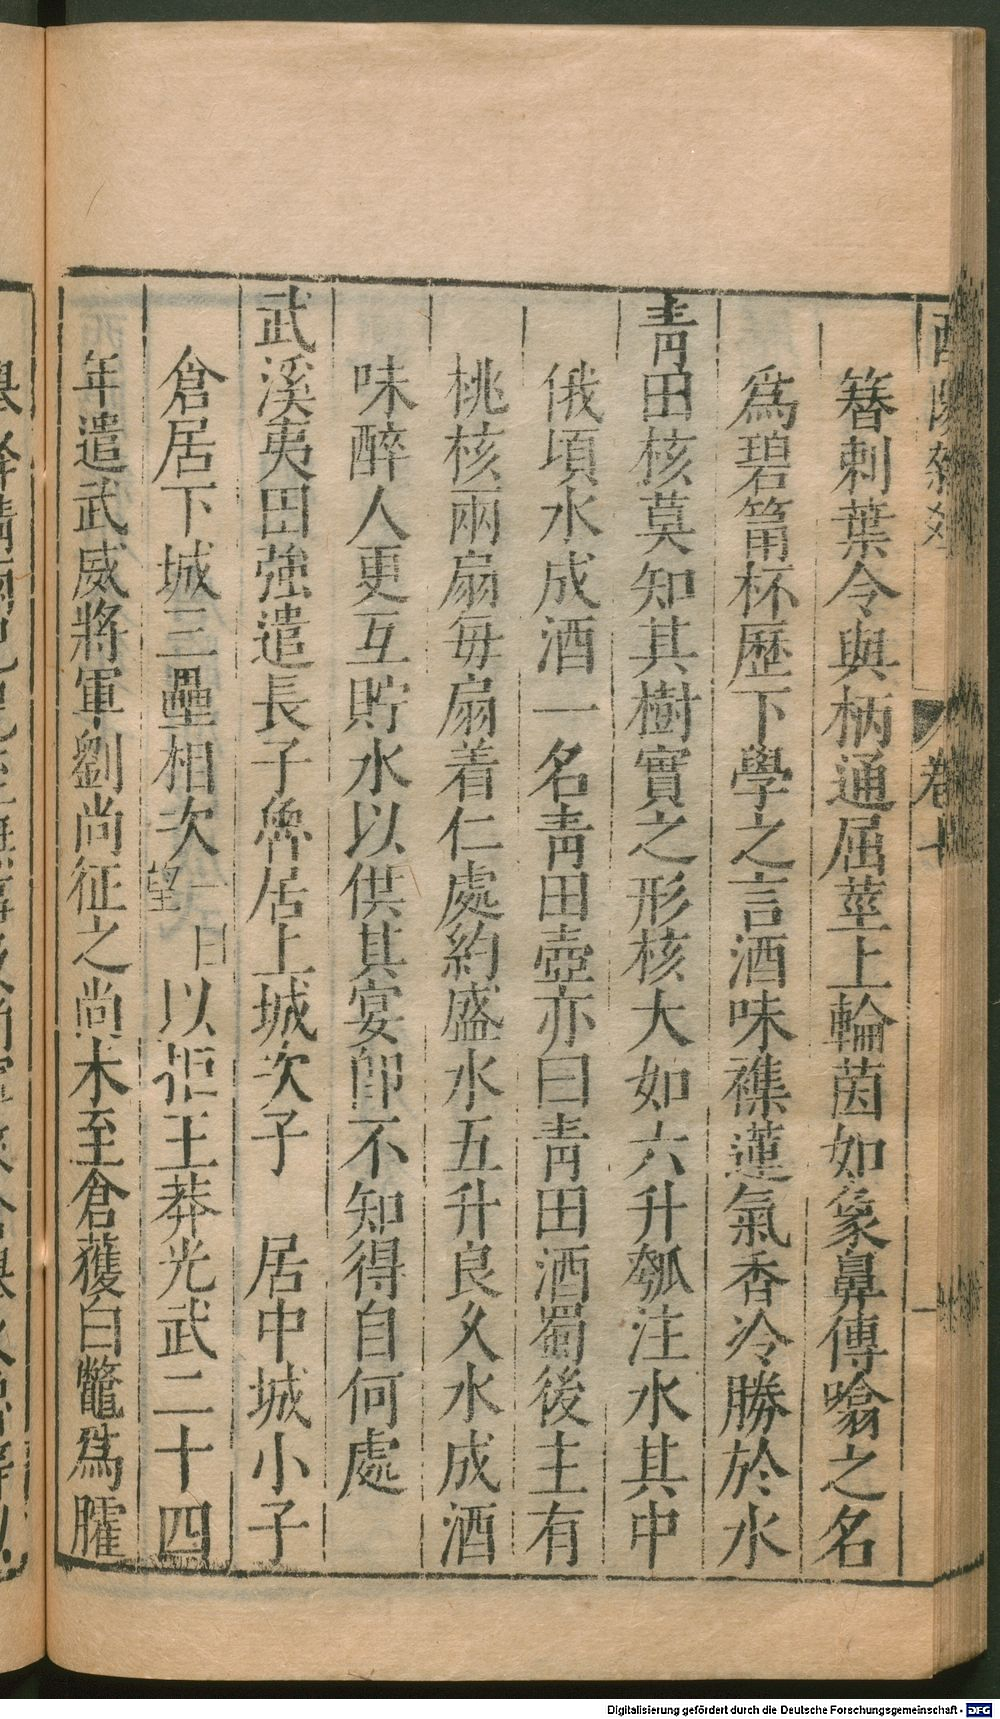 簪刺葉令與柄通屈莖上輪菌如象鼻傳噏之名
爲碧筩杯歷下學之言酒味襍蓮氣香冷勝於水
靑田核莫知其樹實之形核大如六升瓠注水其中
俄頃水成酒一名靑田壺亦曰靑田酒蜀後主有
桃核兩扇每扇着仁處約盛水五升良久水成酒
味醉人更互貯水以供其宴卽不知得自何處
武溪夷田強遣長子魯居上城次子 居中城小子
倉居下城三壘相次
一曰
望
以拒王莽光武二十四
年遣武威將軍劉尚征之尚未至倉獲白鼈爲臛
卷七
一
Digitalisierung gefördert durch die Deutsche Forschungsgemeinschaft - DFG